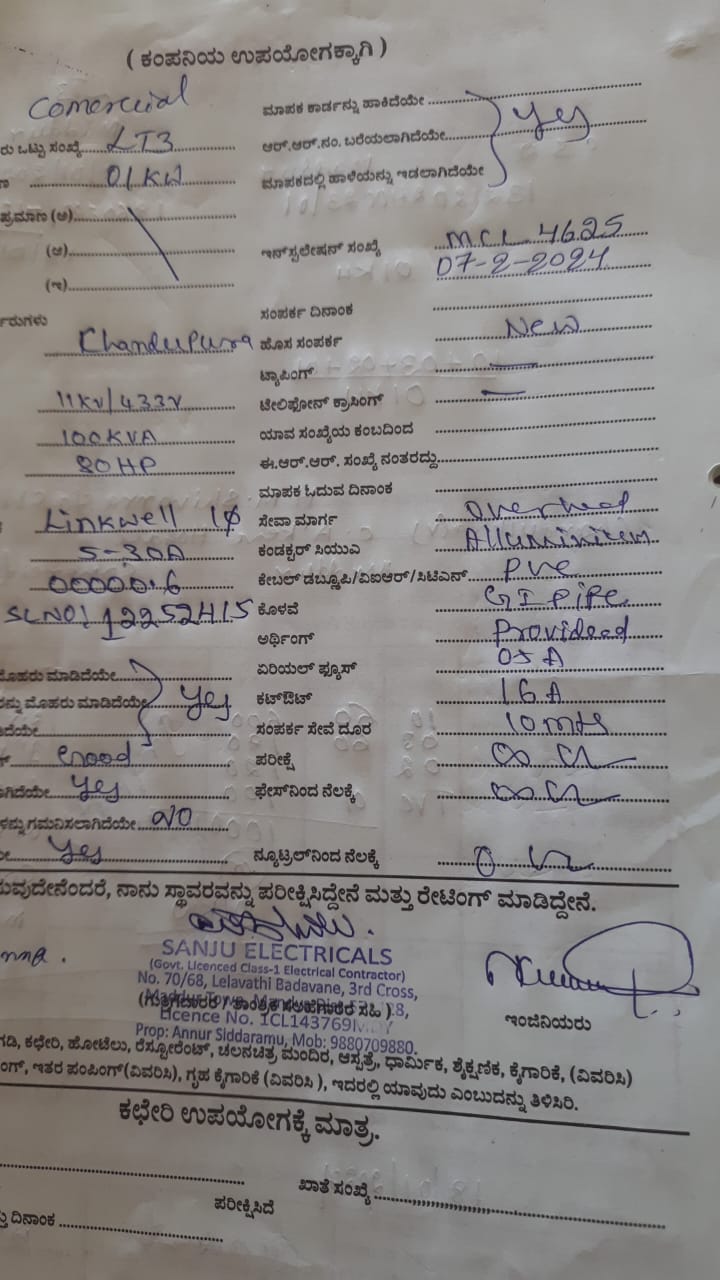 ( ಕಂಪನಿಯ ಉಪಯೋಗಕ್ಕಾಗಿ )
Comercial ಮಾಪಕ ಕಾರ್ಡನ್ನು ಹಾಕಿದೆಯೇ
ರು ಒಟ್ಟು ಸಂಖ್ಯೆ LT3 ಆರ್.ಆರ್.ನಂ. ಬರೆಯಲಾಗಿದೆಯೇ Yes
01 KW ಮಾಪಕದಲ್ಲಿ ಹಾಳೆಯನ್ನು ಇಡಲಾಗಿದೆಯೇ
ಪ್ರಮಾಣ (ಅ)
(ಆ) ಇನ್‌ಸ್ಟಲೇಷನ್ ಸಂಖ್ಯೆ MCL 4625
(ಇ) 07-2-2024
ಸಂಪರ್ಕ ದಿನಾಂಕ
Chandupura ಹೊಸ ಸಂಪರ್ಕ New
ಟ್ಯಾಪಿಂಗ್ —
11KV/433V ಟೇಲಿಫೋನ್ ಕ್ರಾಸಿಂಗ್ —
100KVA ಯಾವ ಸಂಖ್ಯೆಯ ಕಂಬದಿಂದ
80HP ಈ.ಆರ್.ಆರ್. ಸಂಖ್ಯೆ ನಂತರದ್ದು
ಮಾಪಕ ಓದುವ ದಿನಾಂಕ
Linkwell 1ϕ ಸೇವಾ ಮಾರ್ಗ overhead
5-30A ಕಂಡಕ್ಟರ್ ಸಿಯುಎ Alluminium
000006 ಕೇಬಲ್ ಡಬ್ಲ್ಯೂಪಿ/ವಿಐಆರ್/ಸಿಟಿಎಸ್ PVC
SLNO: 12252415 ಕೊಳವೆ GI PIPE
ಅರ್ಥಿಂಗ್ Providead
ಮೊಹರು ಮಾಡಿದೆಯೇ ಏರಿಯಲ್ ಫ್ಯೂಸ್ 05A
ರನ್ನು ಮೊಹರು ಮಾಡಿದೆಯೇ Yes ಕಟ್‌ಔಟ್ 16A
ದೆಯೇ ಸಂಪರ್ಕ ಸೇವೆ ದೂರ 10mts
Good ಪರೀಕ್ಷೆ ∞ Ω
ಗಿದೆಯೇ Yes ಫೇಸ್‌ನಿಂದ ನೆಲಕ್ಕೆ ∞ Ω
ಳನ್ನು ಗಮನಿಸಲಾಗಿದೆಯೇ NO
Yes ನ್ಯೂಟ್ರಲ್‌ನಿಂದ ನೆಲಕ್ಕೆ 0 Ω
ುವುದೇನೆಂದರೆ, ನಾನು ಸ್ಥಾವರವನ್ನು ಪರೀಕ್ಷಿಸಿದ್ದೇನೆ ಮತ್ತು ರೇಟಿಂಗ್ ಮಾಡಿದ್ದೇನೆ.
SANJU ELECTRICALS
(Govt. Licenced Class-1 Electrical Contractor)
No. 70/68, Lelavathi Badavane, 3rd Cross,
(ಗುತ್ತಿಗೆದಾರರ / ತಾಂತ್ರಿಕ ಸಲಹೆಗಾರರ ಸಹಿ )
Licence No. 1CL143769
Prop: Annur Siddaramu, Mob: 9880709880.
ಇಂಜಿನಿಯರು
ಗಡಿ, ಕಛೇರಿ, ಹೋಟೆಲು, ರೆಸ್ಟೋರೆಂಟ್, ಚಲನಚಿತ್ರ ಮಂದಿರ, ಆಸ್ಪತ್ರೆ, ಧಾರ್ಮಿಕ, ಶೈಕ್ಷಣಿಕ, ಕೈಗಾರಿಕೆ, (ವಿವರಿಸಿ)
ಂಗ್, ಇತರ ಪಂಪಿಂಗ್(ವಿವರಿಸಿ), ಗೃಹ ಕೈಗಾರಿಕೆ (ವಿವರಿಸಿ ), ಇದರಲ್ಲಿ ಯಾವುದು ಎಂಬುದನ್ನು ತಿಳಿಸಿರಿ.
ಕಛೇರಿ ಉಪಯೋಗಕ್ಕೆ ಮಾತ್ರ.
ಖಾತೆ ಸಂಖ್ಯೆ
ಪರೀಕ್ಷಿಸಿದೆ
ದಿನಾಂಕ